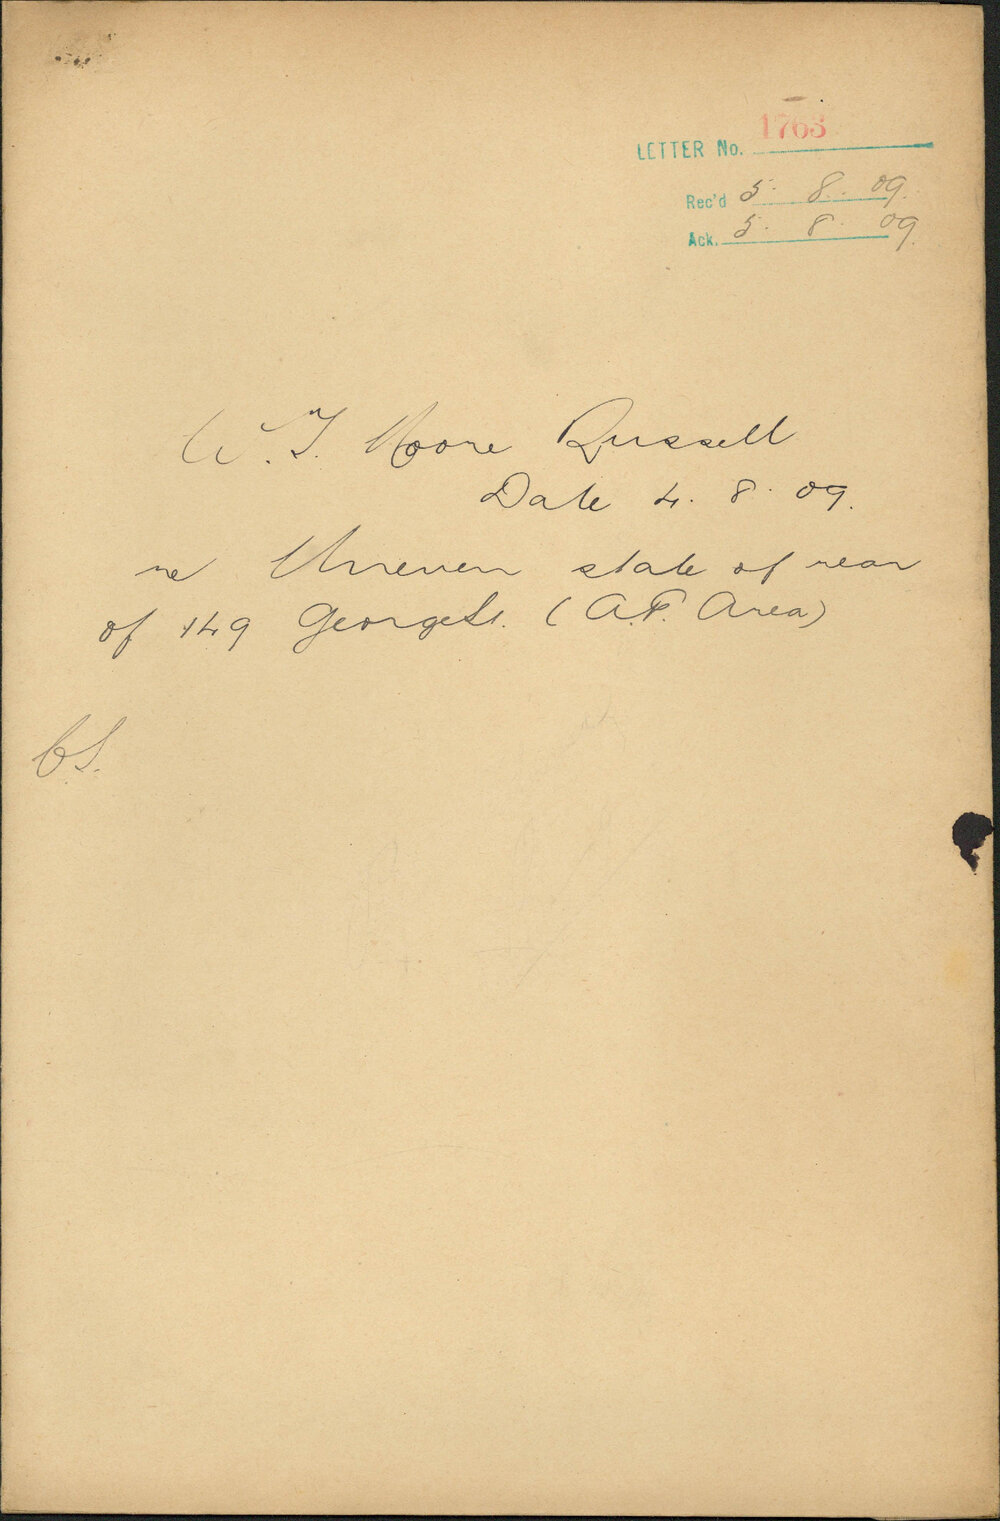 LETTER No. 1763
Rec'd 5. 8. 09.
Ack. 5. 8. 09.
W. J. Moore Russell
Date 4. 8. 09.
re Uneven state of rear
of 149 George St. (A.P. Area)
C.S.